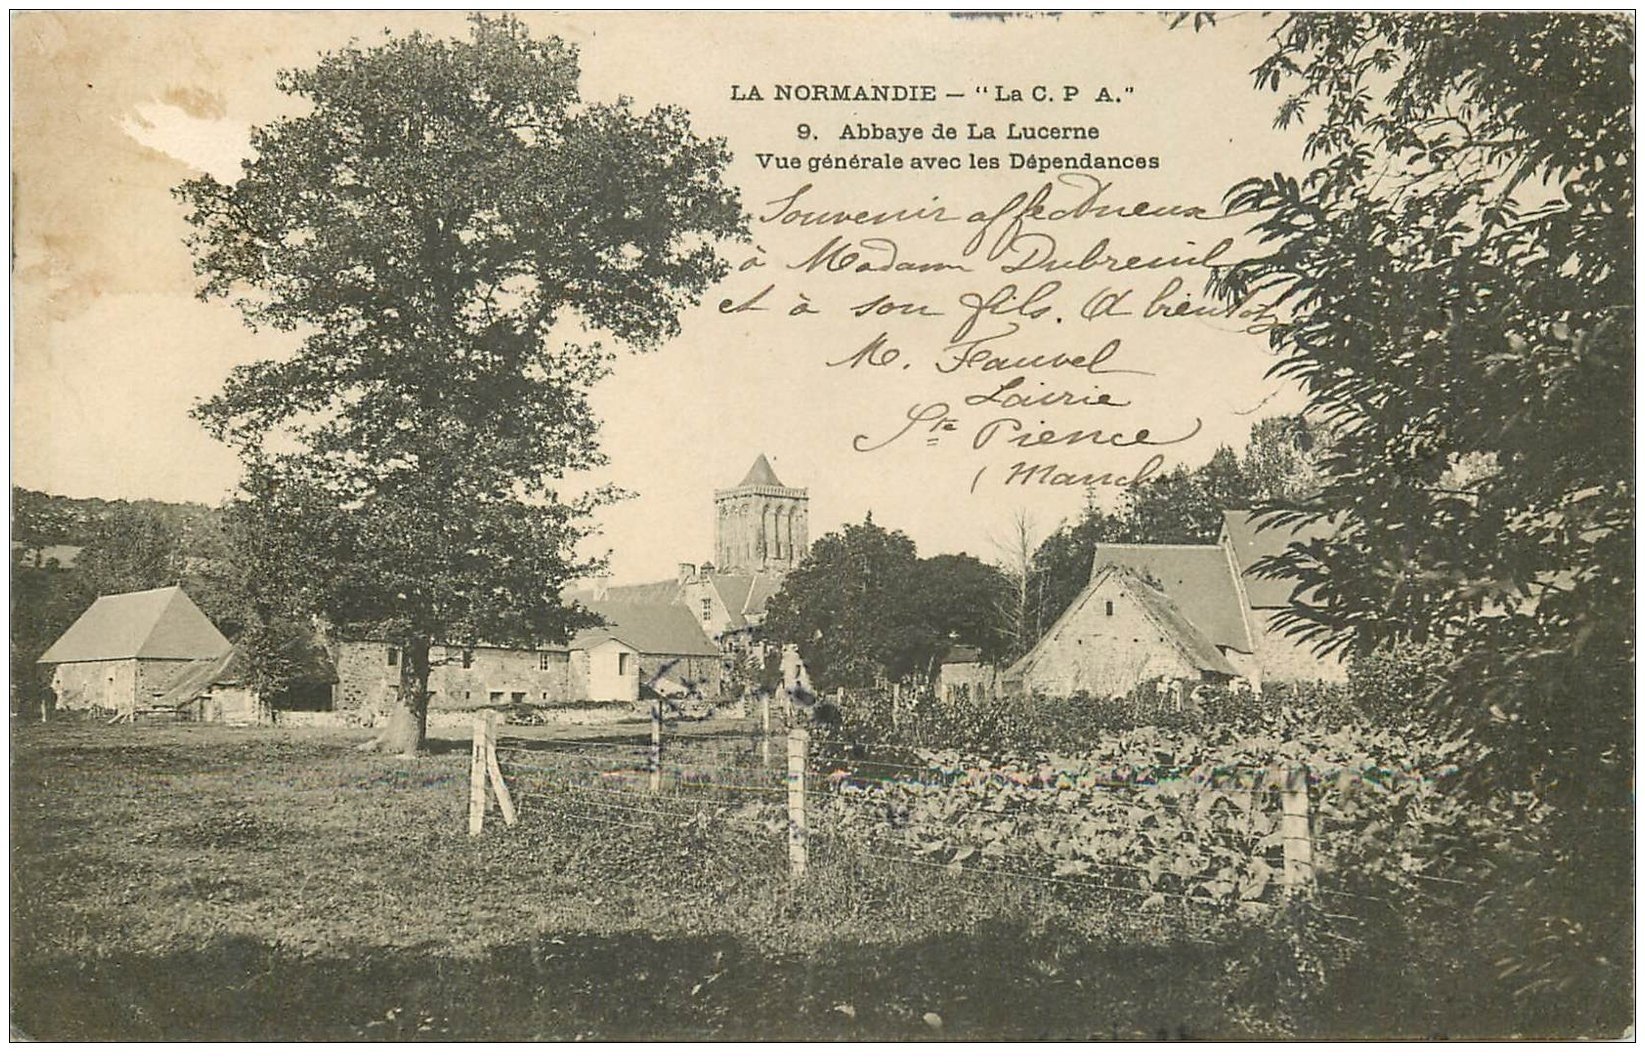 LA NORMANDIE — "La C. P A."
9. Abbaye de La Lucerne
Vue générale avec les Dépendances
Souvenir affectueux
à Madame Dubreuil
et à son fils. A bientôt
M. Fauvel
Ste Pience
(Manche